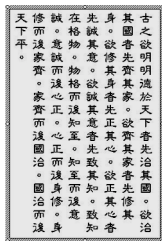 古之欲明明德於天下者先治其國。欲治
其國者先齊其家。欲齊其家者先修其
身。欲修其身者先正其心。欲正其心者
先誠其意。欲誠其意者先致其知。致知
在格物。物格而後知至。知至而後意
誠。意誠而後心正。心正而後身修。身
修而後家齊。家齊而後國治。國治而後
天下平。